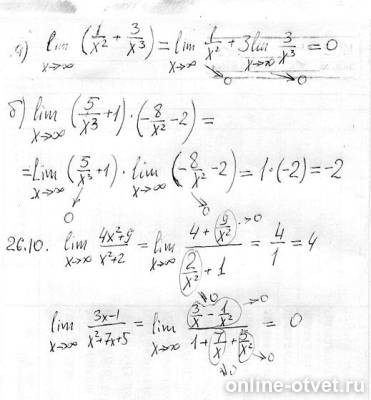 а) lim x→∞ (1/x² + 3/x³) = lim x→∞ 1/x² + 3 lim x→∞ 3/x³ = 0
→0 →0
б) lim x→∞ (5/x³ + 1) · (-8/x² - 2) =
= lim x→∞ (5/x³ + 1) · lim x→∞ (-8/x² - 2) = 1 · (-2) = -2
0 →0
26.10. lim x→∞ (4x² + 9)/(x² + 2) = lim x→∞ (4 + 9/x²)/(2/x² + 1) = 4/1 = 4
→0 →0
lim x→∞ (3x - 1)/(x² + 7x + 5) = lim x→∞ (3/x - 1/x²)/(1 + 7/x + 5/x²) = 0
→0 →0 →0
online-otvet.ru